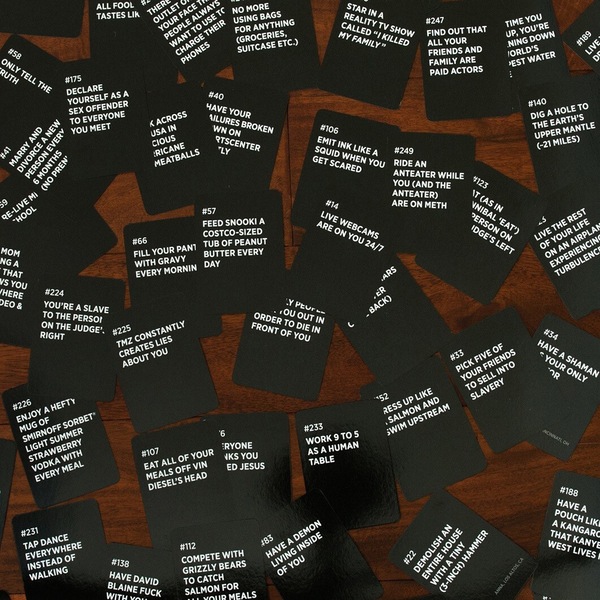 ALL FOOL
TASTES LIK
OUTLET
YOUR FACE
PEOPLE ALWAYS
WANT TO USE
CHARGE THEIR
PHONES
NO MORE
USING BAGS
FOR ANYTHING
(GROCERIES,
SUITCASE ETC.)
STAR IN A
REALITY TV SHOW
CALLED "I KILLED
MY FAMILY"
#247
FIND OUT THAT
ALL YOUR
FRIENDS AND
FAMILY ARE
PAID ACTORS
TIME YOU
UP, YOU'RE
NING DOWN
ORLD'S
EST WATER
#189
LIVE
#58
ONLY TELL THE
RUTH
#175
DECLARE
YOURSELF AS A
SEX OFFENDER
TO EVERYONE
YOU MEET
#41
MARRY AND
DIVORCE A NEW
PERSON EVERY
6 MONTHS
(NO PREN
ACROSS
USA IN
CIOUS
RICANE
MEATBALLS
#40
HAVE YOUR
ILURES BROKEN
WN ON
RTSCENTER
LY
#106
EMIT INK LIKE A
SQUID WHEN YOU
GET SCARED
#249
RIDE AN
ANTEATER WHILE
YOU (AND THE
ANTEATER)
ARE ON METH
#123
(AS IN
NIBAL 'EAT')
PERSON ON
DGE'S LEFT
#140
DIG A HOLE TO
THE EARTH'S
UPPER MANTLE
(~21 MILES)
LIVE THE REST
OF YOUR LIFE
ON AN AIRPLAN
EXPERIENCING
TURBULENC
RE-LIVE MI
HOOL
MOM
NG A
THAT
WS YOU
WHERE
DEO &
#66
FILL YOUR PANT
WITH GRAVY
EVERY MORNIN
#57
FEED SNOOKI A
COSTCO-SIZED
TUB OF PEANUT
BUTTER EVERY
DAY
#14
LIVE WEBCAMS
ARE ON YOU 24/7
ARS
BACK)
#224
YOU'RE A SLAVE
TO THE PERSO
ON THE JUDGE'
RIGHT
#225
TMZ CONSTANTLY
CREATES LIES
ABOUT YOU
PEOPL
YOU OUT IN
ORDER TO DIE IN
FRONT OF YOU
#33
PICK FIVE OF
YOUR FRIENDS
TO SELL INTO
SLAVERY
#34
HAVE A SHAMAN
YOUR ONLY
OR
CINCINNATI, OH
#226
ENJOY A HEFTY
MUG OF
SMIRNOFF SORBET
LIGHT SUMMER
STRAWBERRY
VODKA WITH
EVERY MEAL
#107
EAT ALL OF YOUR
MEALS OFF VIN
DIESEL'S HEAD
RYONE
NKS YOU
ED JESUS
#233
WORK 9 TO 5
AS A HUMAN
TABLE
52
RESS UP LIKE
SALMON AND
SWIM UPSTREAM
#231
TAP DANCE
EVERYWHERE
INSTEAD OF
WALKING
#138
HAVE DAVID
BLAINE FUCK
WITH YOU
#112
COMPETE WITH
GRIZZLY BEARS
TO CATCH
SALMON FOR
ALL YOUR MEALS
#83
HAVE A DEMON
LIVING INSIDE
OF YOU
#22
DEMOLISH AN
ENTIRE HOUSE
WITH A TINY
(3-INCH) HAMMER
ANNA, LOS ALTOS, CA
#188
HAVE A
POUCH LIK
A KANGARO
THAT KANYE
WEST LIVES